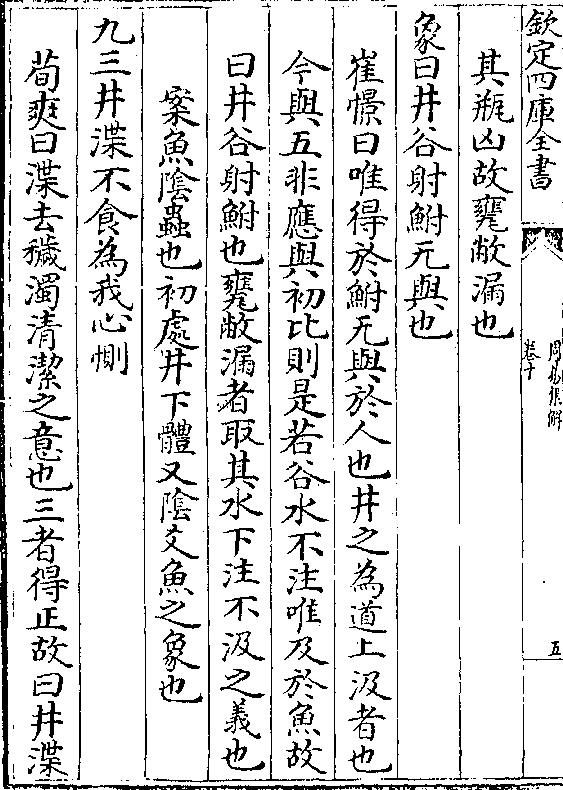 欽定四庫全書
周易集解
卷十
五
其瓶凶故甕敝漏也
象曰井谷射鮒无與也
崔憬曰唯得於鮒无與於人也井之為道上汲者也
今與五非應與初比則是若谷水不注唯及於魚故
曰井谷射鮒也甕敝漏者取其水下注不汲之義也
案魚陰蟲也初處井下體又陰爻魚之象也
九三井渫不食為我心惻
荀爽曰渫去穢濁清潔之意也三者得正故曰井渫